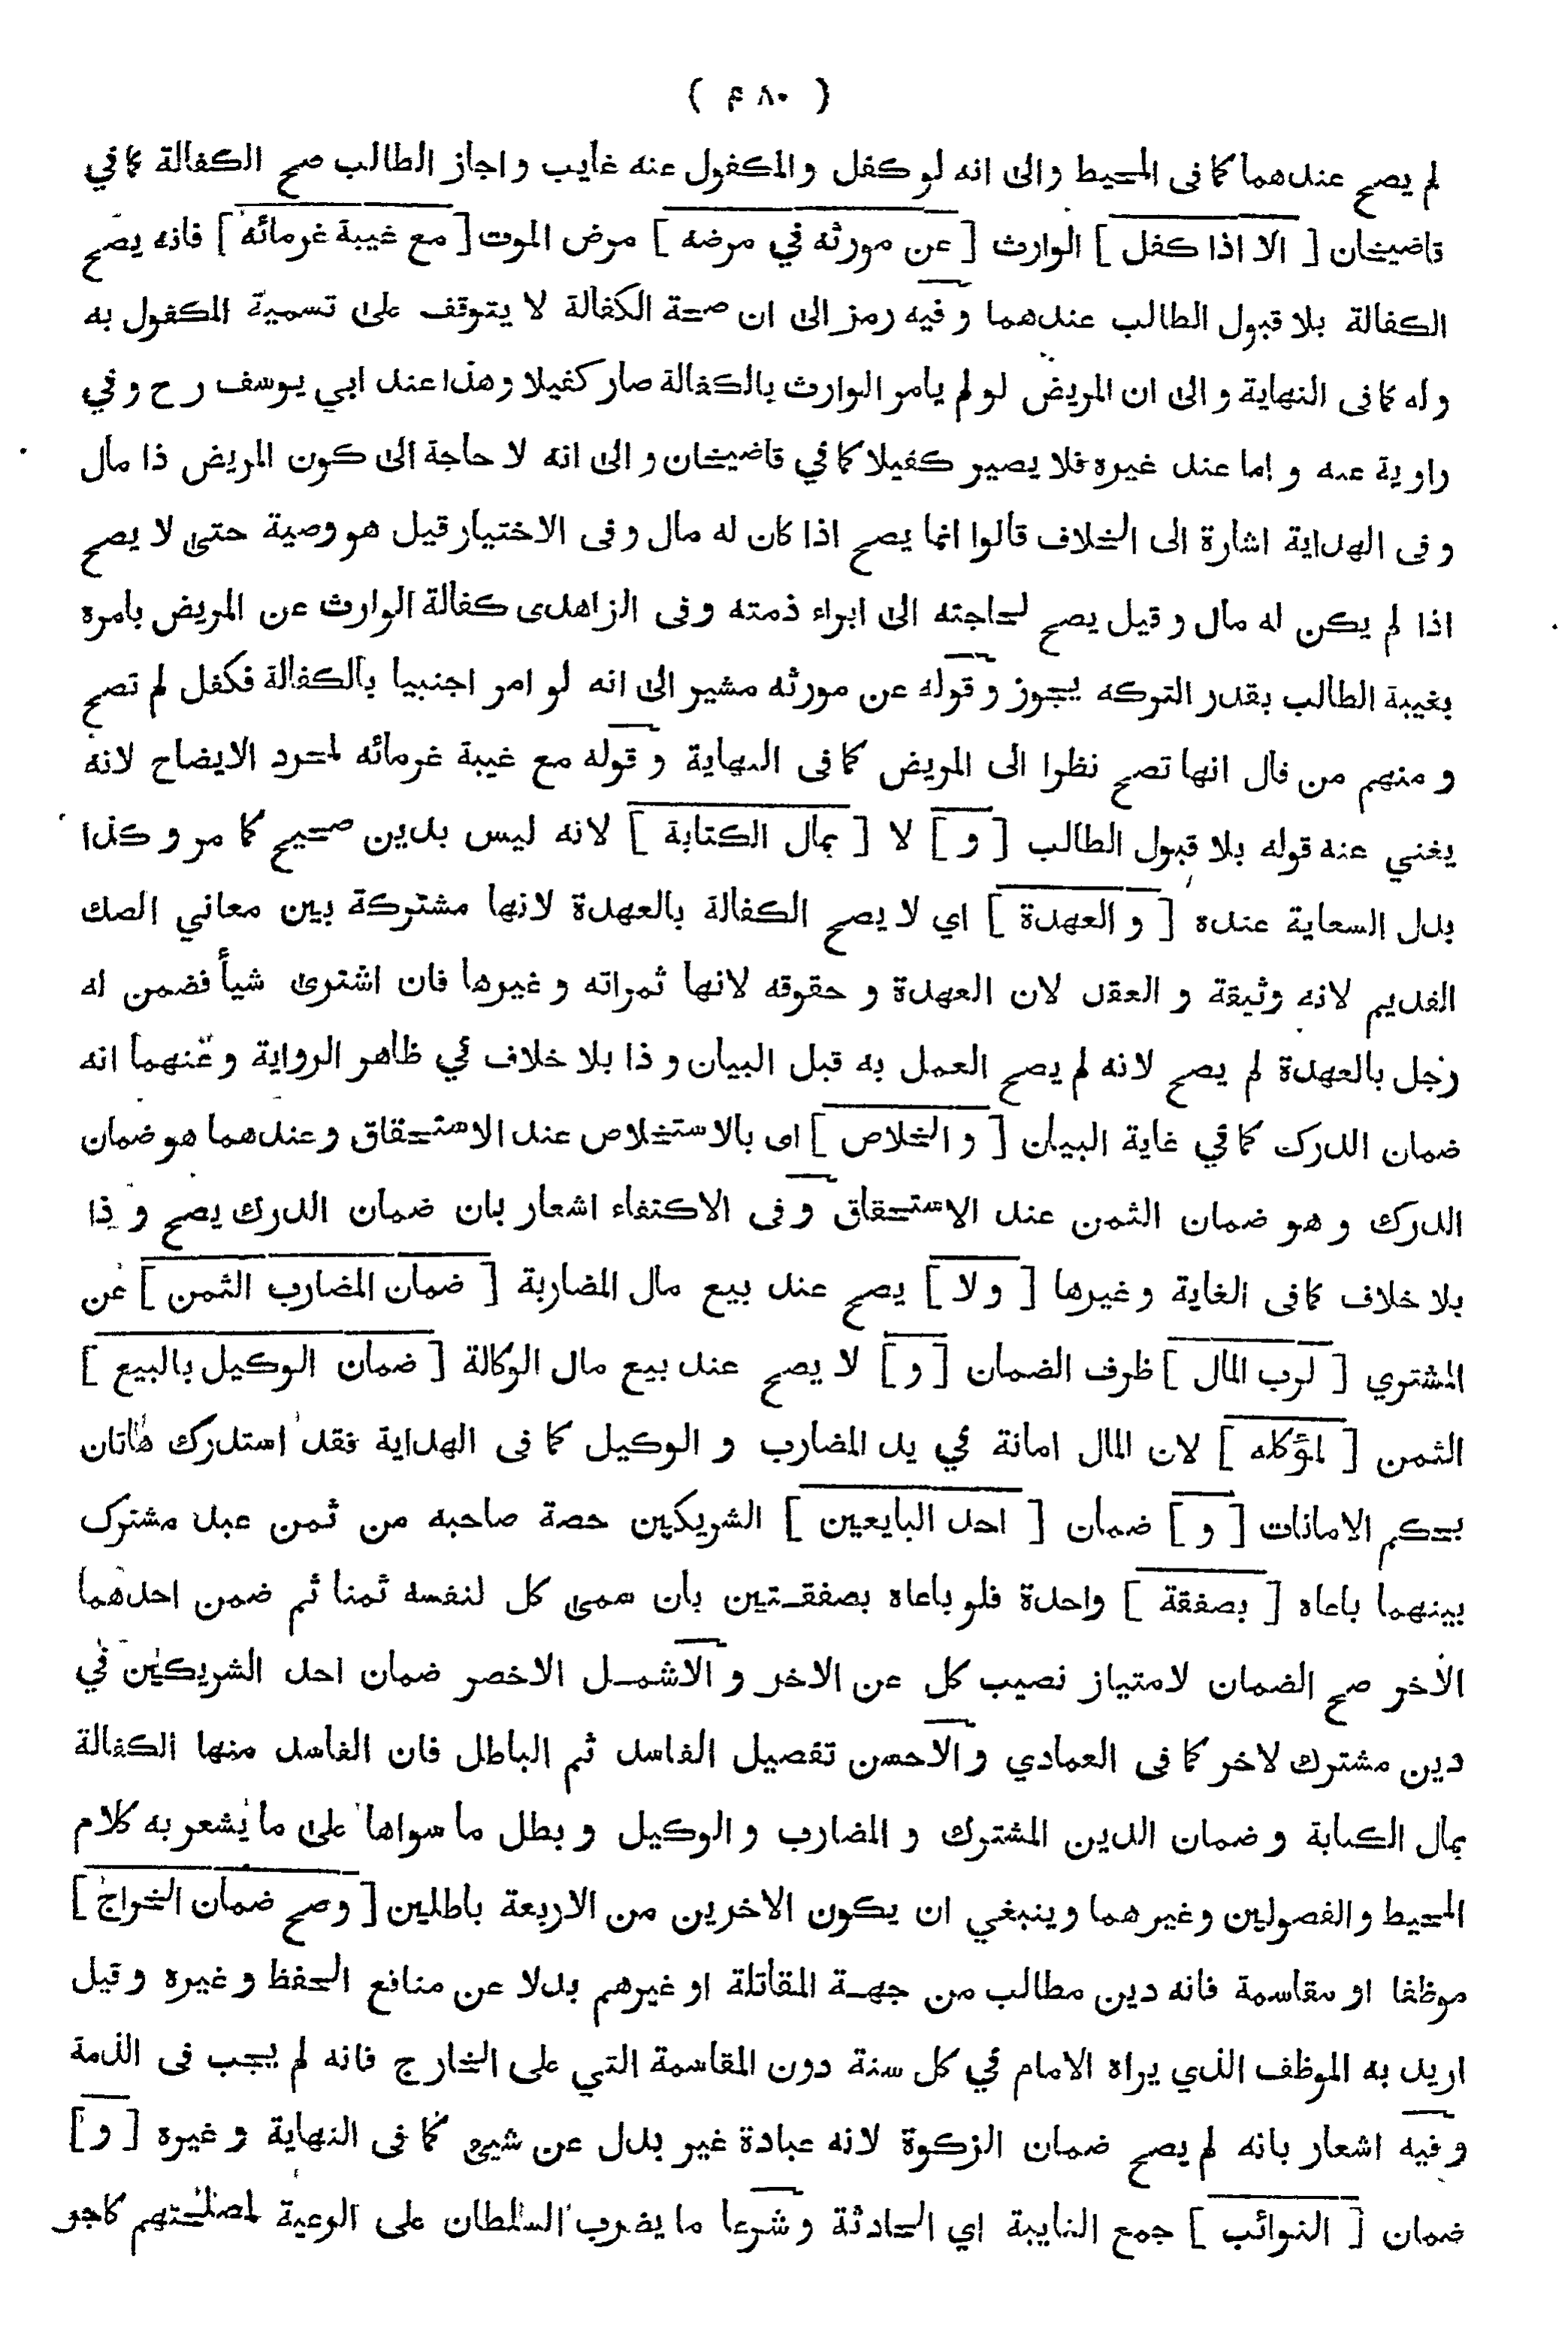 ( ۴۸۰ )
لم يصح عندهما كما فى المحيط والى انه لو كفل والمكفول عنه غايب واجاز الطالب صح الكفالة كما في
قاضيخان [ الا اذا كفل ] الوارث [ عن مورثه في مرضه ] مرض الموت [ مع غيبة غرمائه ] فانه يصح
الكفالة بلا قبول الطالب عندهما وفيه رمز الى ان صحة الكفالة لا يتوقف على تسمية المكفول به
وله كما فى النهاية والى ان المريض لو لم يامر الوارث بالكفالة صار كفيلا وهذا عند ابي يوسف رح وفي
راوية عنه و اما عند غيره فلا يصير كفيلا كما في قاضيخان والى انه لا حاجة الى كون المريض ذا مال
و فى الهداية اشارة الى الخلاف قالوا انما يصح اذا كان له مال وفى الاختيار قيل هو وصية حتى لا يصح
اذا لم يكن له مال وقيل يصح لحاجته الى ابراء ذمته وفى الزاهدى كفالة الوارث عن المريض بامره
بغيبة الطالب بقدر التركه يجوز وقوله عن مورثه مشير الى انه لو امر اجنبيا بالكفالة فكفل لم تصح
و منهم من قال انها تصح نظرا الى المريض كما فى النهاية وقوله مع غيبة غرمائه لمجرد الايضاح لانه
يغني عنه قوله بلا قبول الطالب [ و ] لا [ بمال الكتابة ] لانه ليس بدين صحيح كما مر و كذا
بدل السعاية عنده [ و العهدة ] اي لا يصح الكفالة بالعهدة لانها مشتركة بين معاني الصك
القديم لانه وثيقة و العقد لان العهدة و حقوقه لانها ثمراته و غيرها فان اشترى شيأ فضمن له
رجل بالعهدة لم يصح لانه لم يصح العمل به قبل البيان وذا بلا خلاف في ظاهر الرواية وعنهما انه
ضمان الدرك كما في غاية البيان [ و الخلاص ] اى بالاستخلاص عند الاستحقاق وعندهما هو ضمان
الدرك و هو ضمان الثمن عند الاستحقاق وفى الاكتفاء اشعار بان ضمان الدرك يصح و ذا
بلا خلاف كما فى الغاية وغيرها [ ولا ] يصح عند بيع مال المضاربة [ ضمان المضارب الثمن ] عن
المشتري [ لرب المال ] ظرف الضمان [ و ] لا يصح عند بيع مال الوكالة [ ضمان الوكيل بالبيع ]
الثمن [ لمؤكله ] لان المال امانة في يد المضارب و الوكيل كما فى الهداية فقد استدرك هاتان
بحكم الامانات [ و ] ضمان [ احد البايعين ] الشريكين حصة صاحبه من ثمن عبد مشترك
بينهما باعاه [ بصفقة ] واحدة فلو باعاه بصفقـتين بان سمى كل لنفسه ثمنا ثم ضمن احدهما
الاخر صح الضمان لامتياز نصيب كل عن الاخر و الاشمـل الاخصر ضمان احد الشريكين في
دين مشترك لاخر كما فى العمادي والاحسن تفصيل الفاسد ثم الباطل فان الفاسد منها الكفالة
بمال الكتابة و ضمان الدين المشترك و المضارب و الوكيل و بطل ما سواها على ما يشعر به كلام
المحيط والفصولين وغيرهما وينبغي ان يكون الاخرين من الاربعة باطلين [ وصح ضمان الخراج ]
موظفا او مقاسمة فانه دين مطالب من جهـة المقاتلة او غيرهم بدلا عن منافع الحفظ و غيره و قيل
اريد به الموظف الذي يراه الامام في كل سنة دون المقاسمة التي على الخارج فانه لم يجب فى الذمة
وفيه اشعار بانه لم يصح ضمان الزكوة لانه عبادة غير بدل عن شيئ كما فى النهاية و غيره [ و ]
ضمان [ النوائب ] جمع النايبة اي الحادثة وشرعا ما يضرب السلطان على الرعية لمصلحتهم كاجر